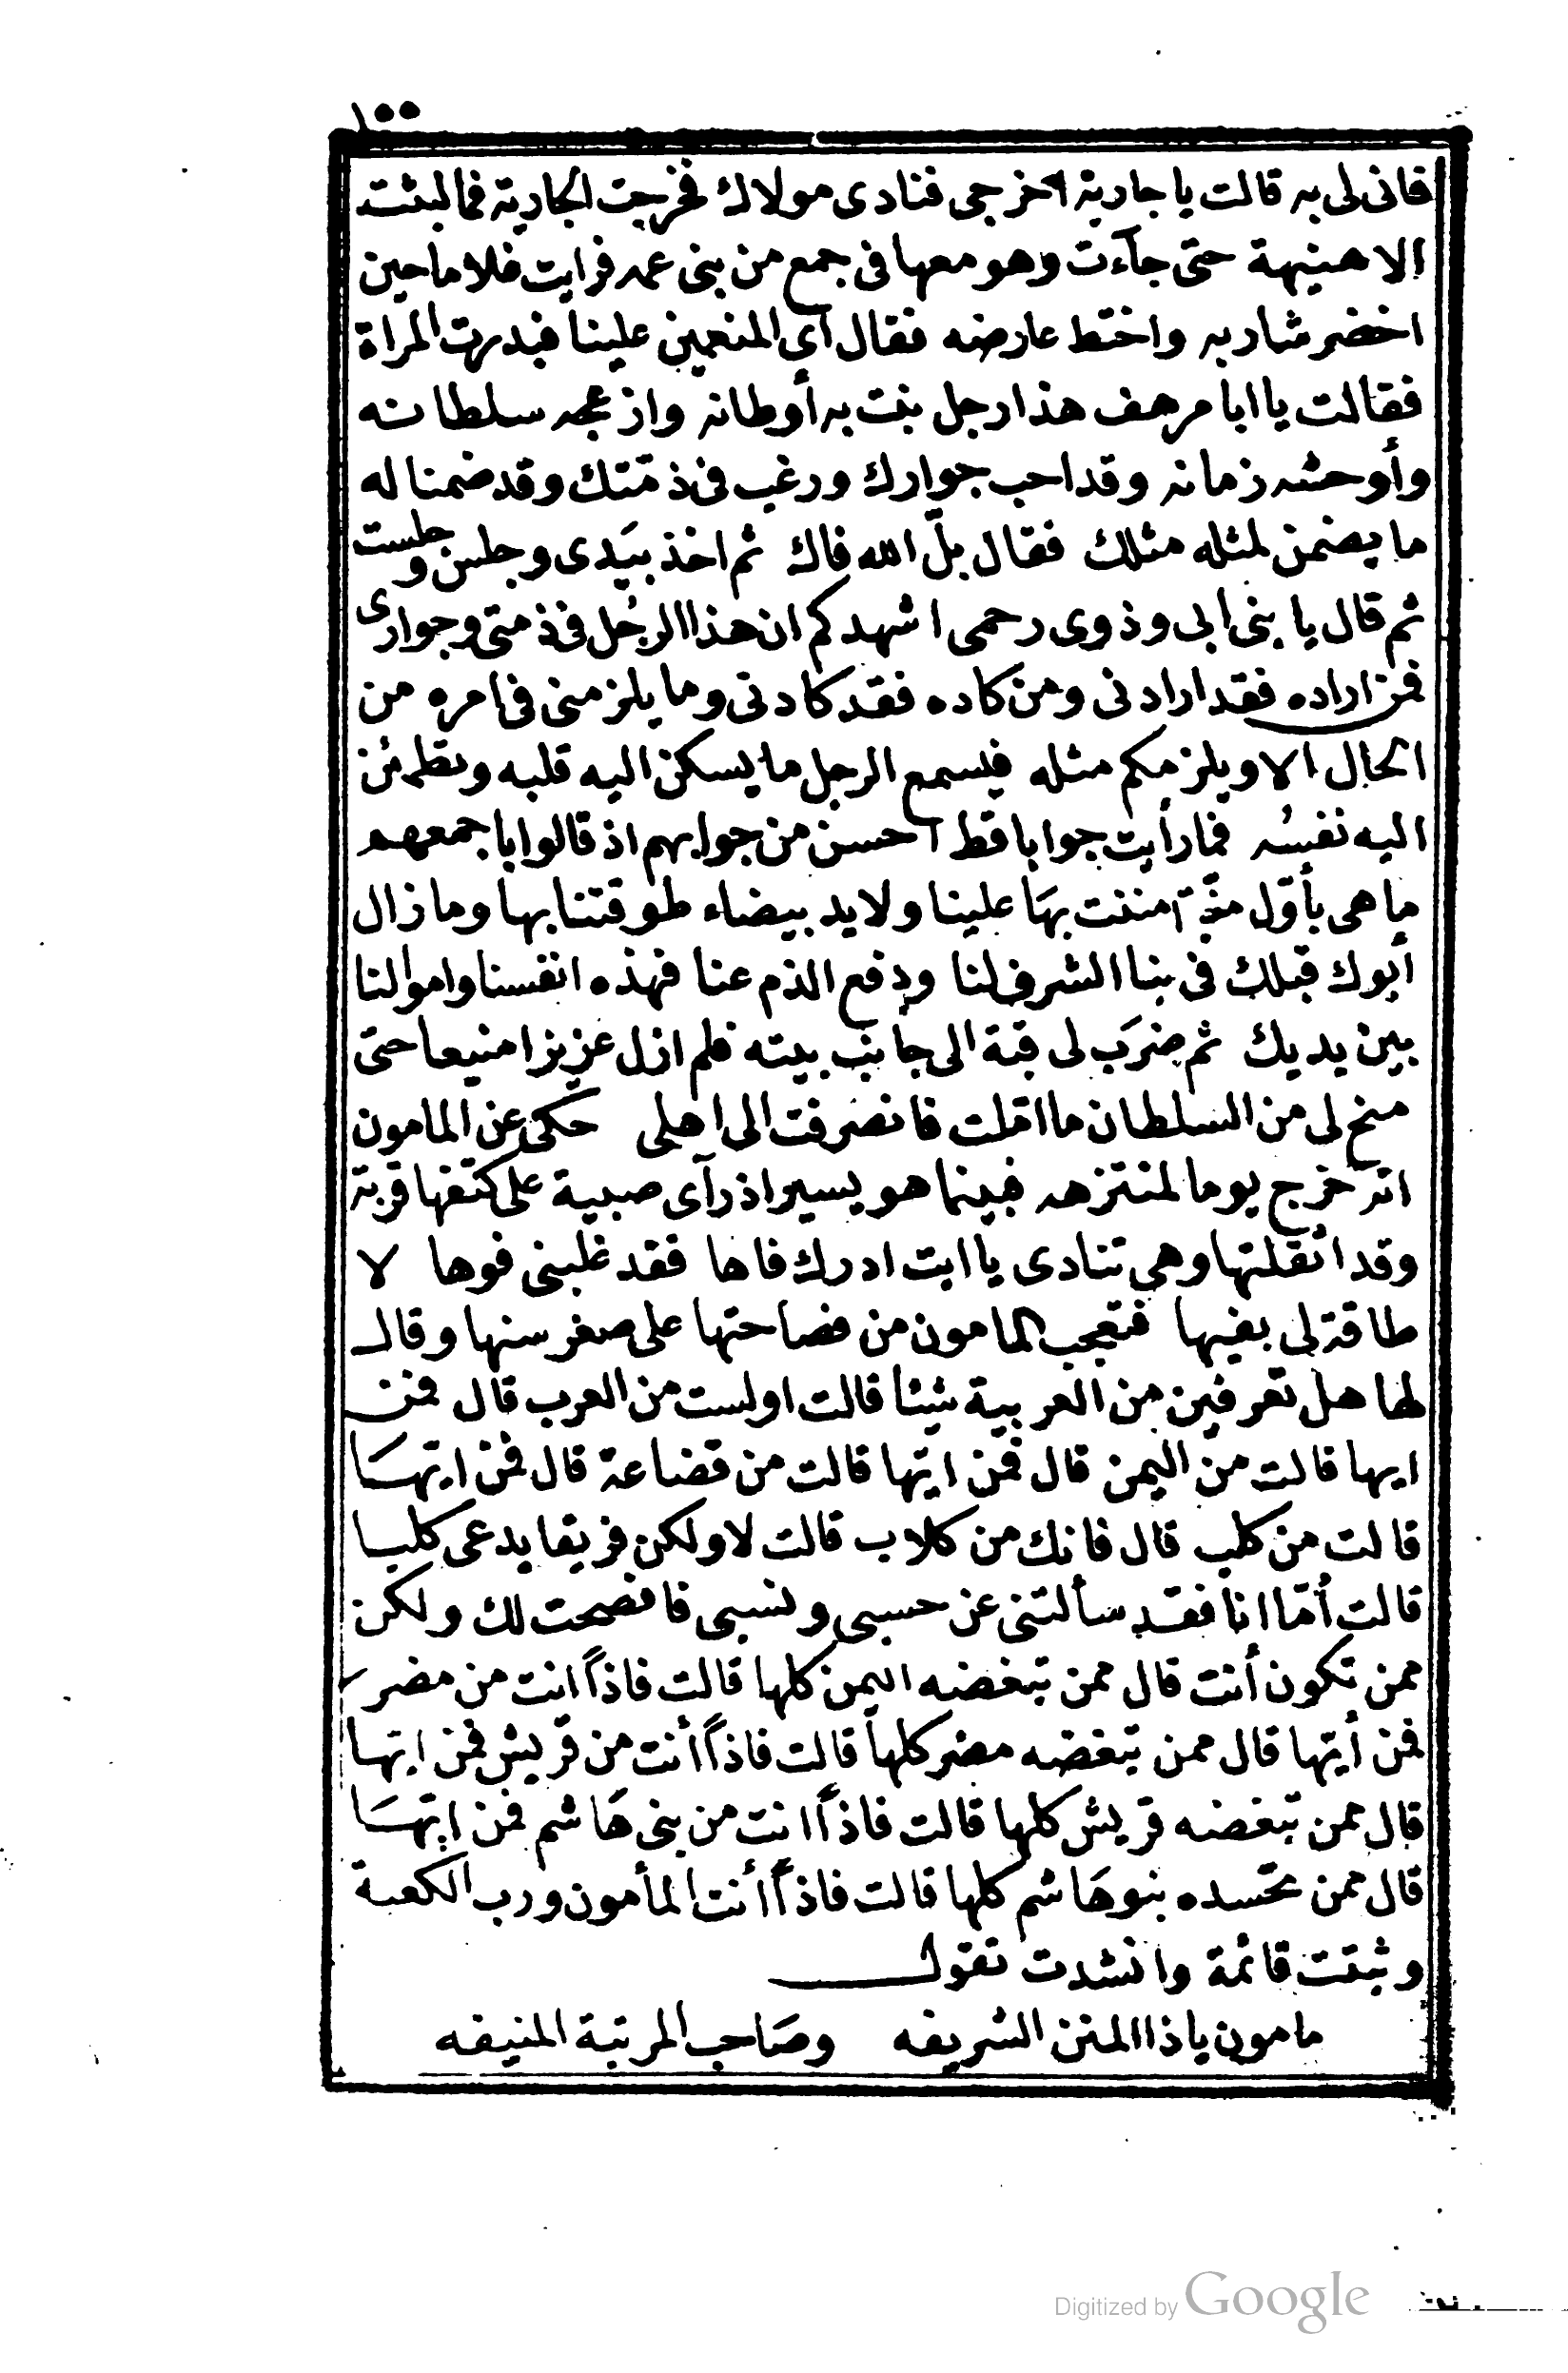 ١٠٠
فانى لى به قالت يا جارية اخرجى فنادى مولاك فخرجت الجارية فما لبثت
الا هنيهة حتى جآءت وهو معها فى جمع من بنى عمه فرايت غلاما حين
اخضر شاربه واختط عارضه فقال أى المنعمين علينا فبدرت المراة
فقالت يا ابا مرهف هذا رجل نبت به أوطانه وازعجه سلطانه
وأوحشه زمانه وقد احب جوارك ورغب فى ذمّتك وقد ضمنا له
ما يضمن لمثله مثلك فقال بلّ الله فاك ثم اخذ بيَدى وجلس وجلست
ثم قال يا بنى ابى وذوى رحمى اشهدكم ان هذا الرجُل فى ذمتى وجوارى
فمن اراده فقد ارادنى ومن كاده فقد كادنى وما يلزمنى فى امره من
الحال الا ويلزمكم مثله فيسمع الرجل ما يسكن اليه قلبه وتطمئن
اليه نفسُه فمارأيت جوابا قط احسن من جوابهم اذ قالوا باجمعهم
ما هى بأوّل منّة امننت بهَا علينا ولا يد بيضاء طوقتنا بها وما زال
أبوك قبلك فى بنا الشرف لنا ودفع الذم عنا فهذه انفسنا واموالنا
بين يديك ثم ضرَب لى قبة الى جانب بيته فلم ازل عزيزا منيعا حتى
منح لى من السلطان ما امّلت فانصرفت الى اهلى حكى عن المامون
انه خرج يوما لمنتزهه فبينما هو يسير اذ رآى صبية على كتفها قربة
وقد اثقلتها وهى تنادى يا ابت ادرك فاها فقد غلبنى فوها لا
طاقة لى بفيها فتعجب المامون من فصاحتها على صغر سنها وقال
لها هل تعرفين من العربية شيئا قالت اولست من العرب قال فمن
ايها قالت من اليمن قال فمن ايتها قالت من قضاعة قال فمن ايتهَا
قالت من كلب قال فانك من كلاب قالت لا ولكن فريقا يدعى كلبا
قالت أمّا انا فقد سألتنى عن حسبى ونسبى فافصحت لك ولكن
ممن تكون أنت قال ممن تبغضه اليمن كلها قالت فاذاً انت من مضر
فمن أيتها قال ممن تبغضه مضر كلها قالت فاذاً أنت من قريش فمن ايتها
قال ممن تبغضه قريش كلها قالت فاذاً انت من بنى هَاشم فمن ايتهَا
قال ممن تحسده بنو هَاشم كلها قالت فاذاً أنت المأمون ورب الكعبة
وثبتت قائمة وانشدت تقول
مامون يا ذا المنن الشريفه وصَاحب المرتبة المنيفه
Digitized by Google